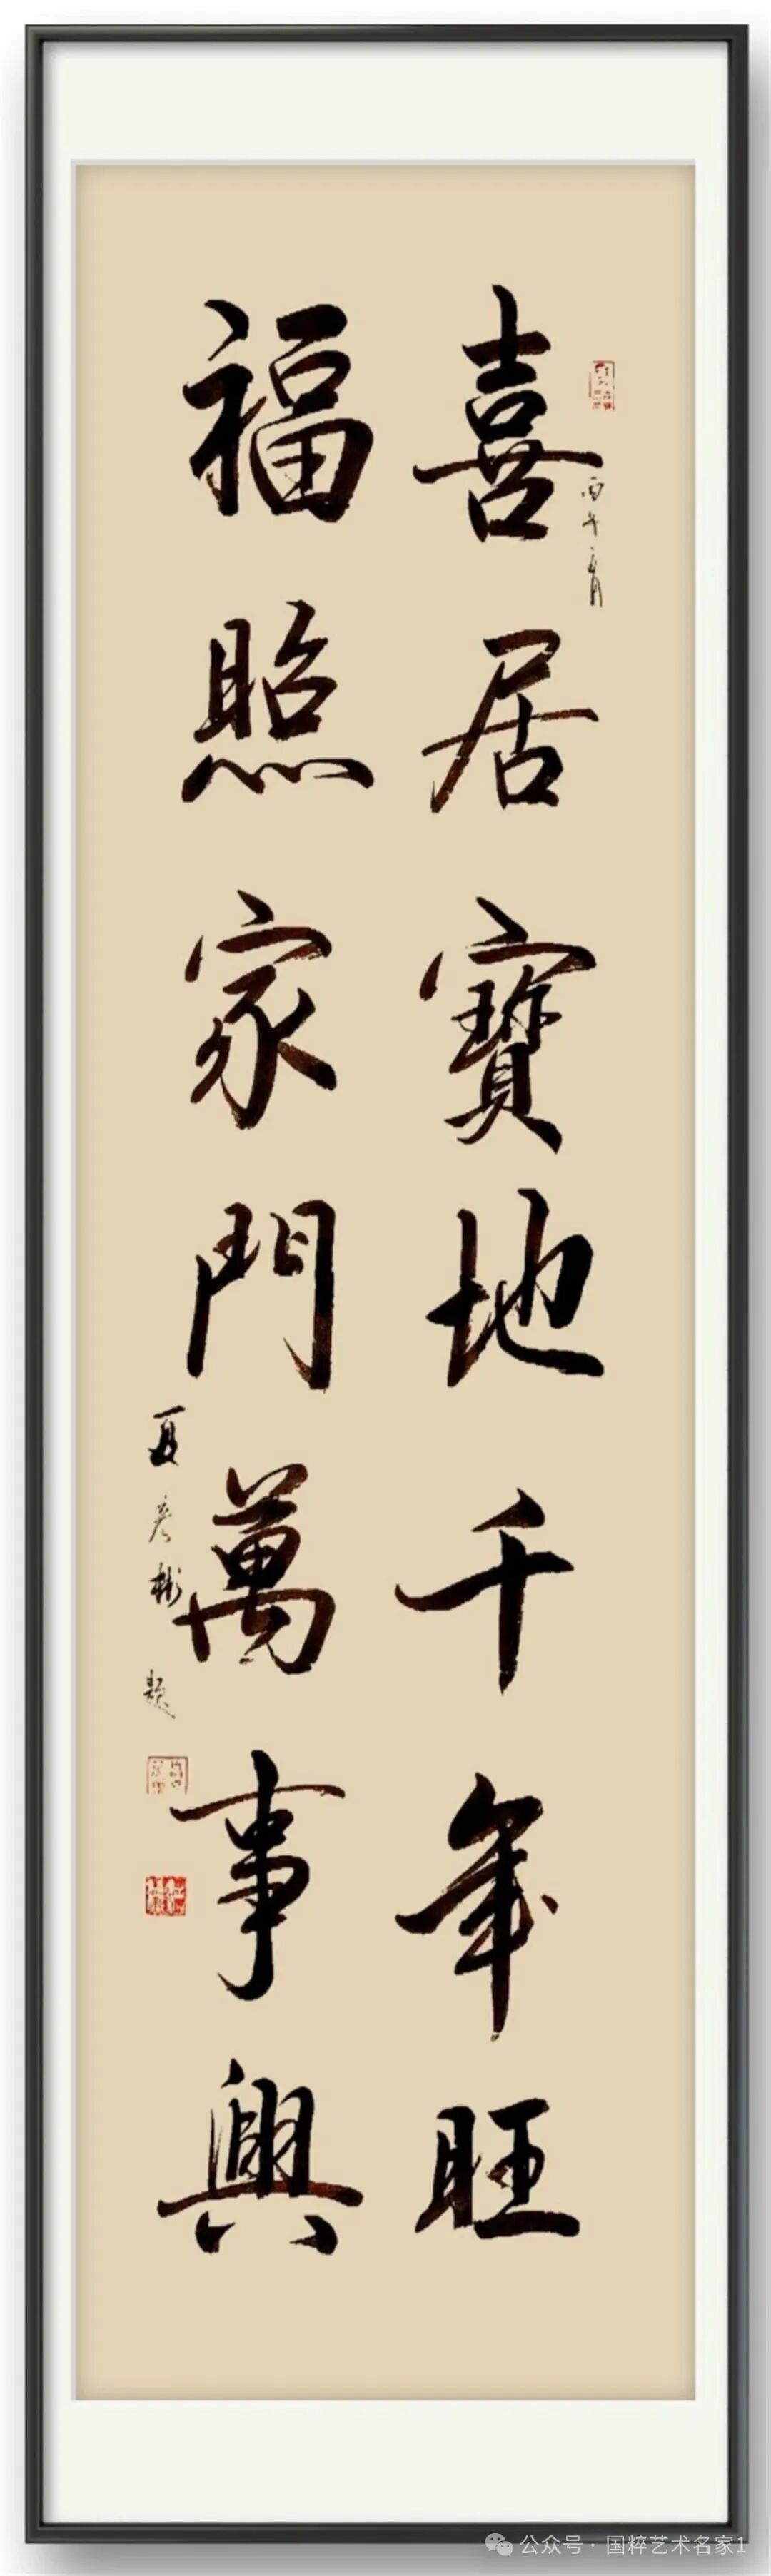 喜居寶地千年旺
福照家門萬事興
丙午
夏彦彬題
公众号 · 国粹艺术名家1